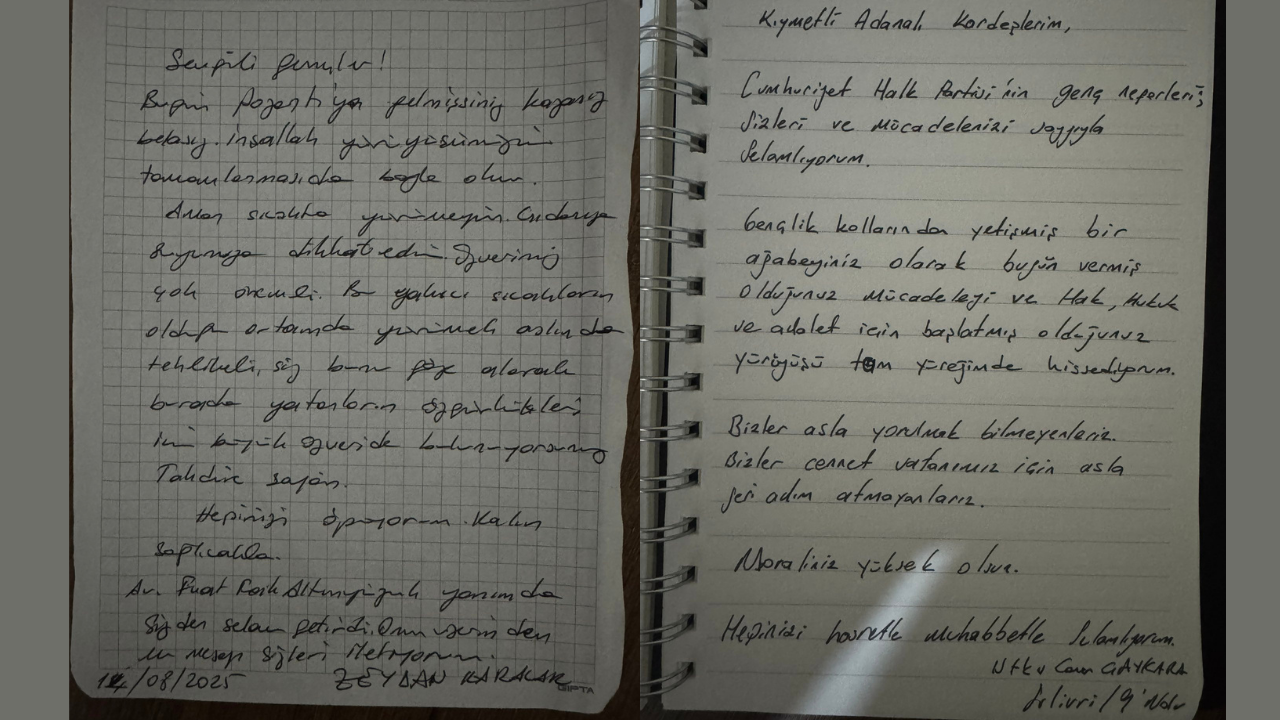 Sevgili gençler!
Bugün Pozantı'ya gelmişsiniz kazasız
belasız. İnşallah yürüyüşünüzün
tamamlanmasıda böyle olur.
Aman sıcakta yürümeyin. Gıdanıza
suyunuza dikkat edin. Özveriniz
çok önemli. Bu yakıcı sıcakların
olduğu ortamda yürümek aslında
tehlikeli, siz bunu göze alarak
burada yatanların özgürlükleri
için büyük özveride bulunuyorsunuz
Takdire şayan.
Hepinizi öpüyorum. Kalın
sağlıcakla.
Av. Fuat yanımda
Sizden selam getirdi. Onun üzerinden
bu mesajı sizlere iletiyorum.
14/08/2025 ZEYDAN KARALAR
GIPTA
Kıymetli Adanalı Kardeşlerim,
Cumhuriyet Halk Partisi'nin genç neferleri;
Sizleri ve mücadelenizi saygıyla
Selamlıyorum.
Gençlik kollarından yetişmiş bir
ağabeyiniz olarak bugün vermiş
olduğunuz mücadeleyi ve Hak, Hukuk
ve adalet için başlatmış olduğunuz
yürüyüşü tam yüreğimde hissediyorum.
Bizler asla yorulmak bilmeyenleriz.
Bizler cennet vatanımız için asla
geri adım atmayanlarız.
Moraliniz yüksek olsun.
Hepinizi hasretle muhabbetle selamlıyorum.
Utku Caner ÇAYKARA
Silivri / 9 Nolu